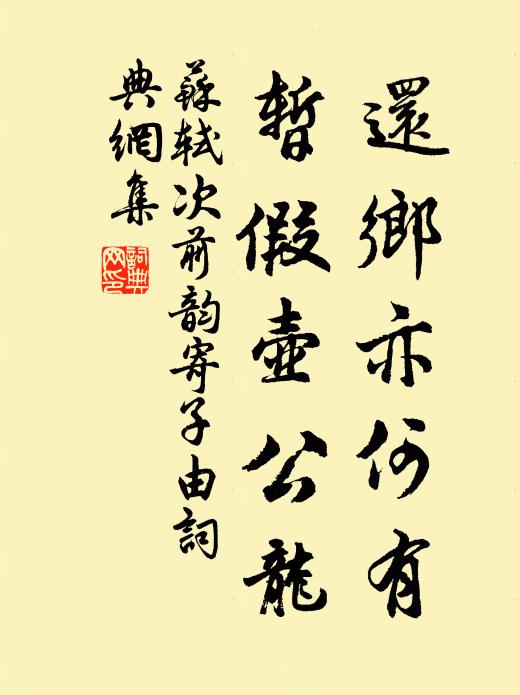 還鄉亦何有
暫假壺公龍
蘇軾次前韵寄子由詞
典網集
詞典
网印